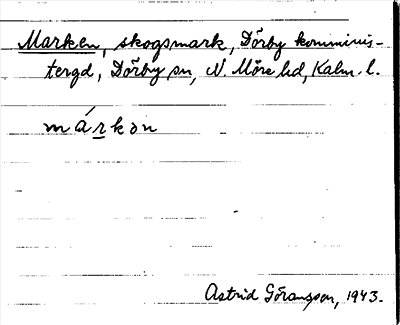 Marken, skogsmark, Dörby komminis-
tergd, Dörby sn, N. Möre hd, Kalm. l.
márkən
Astrid Göransson, 1943.